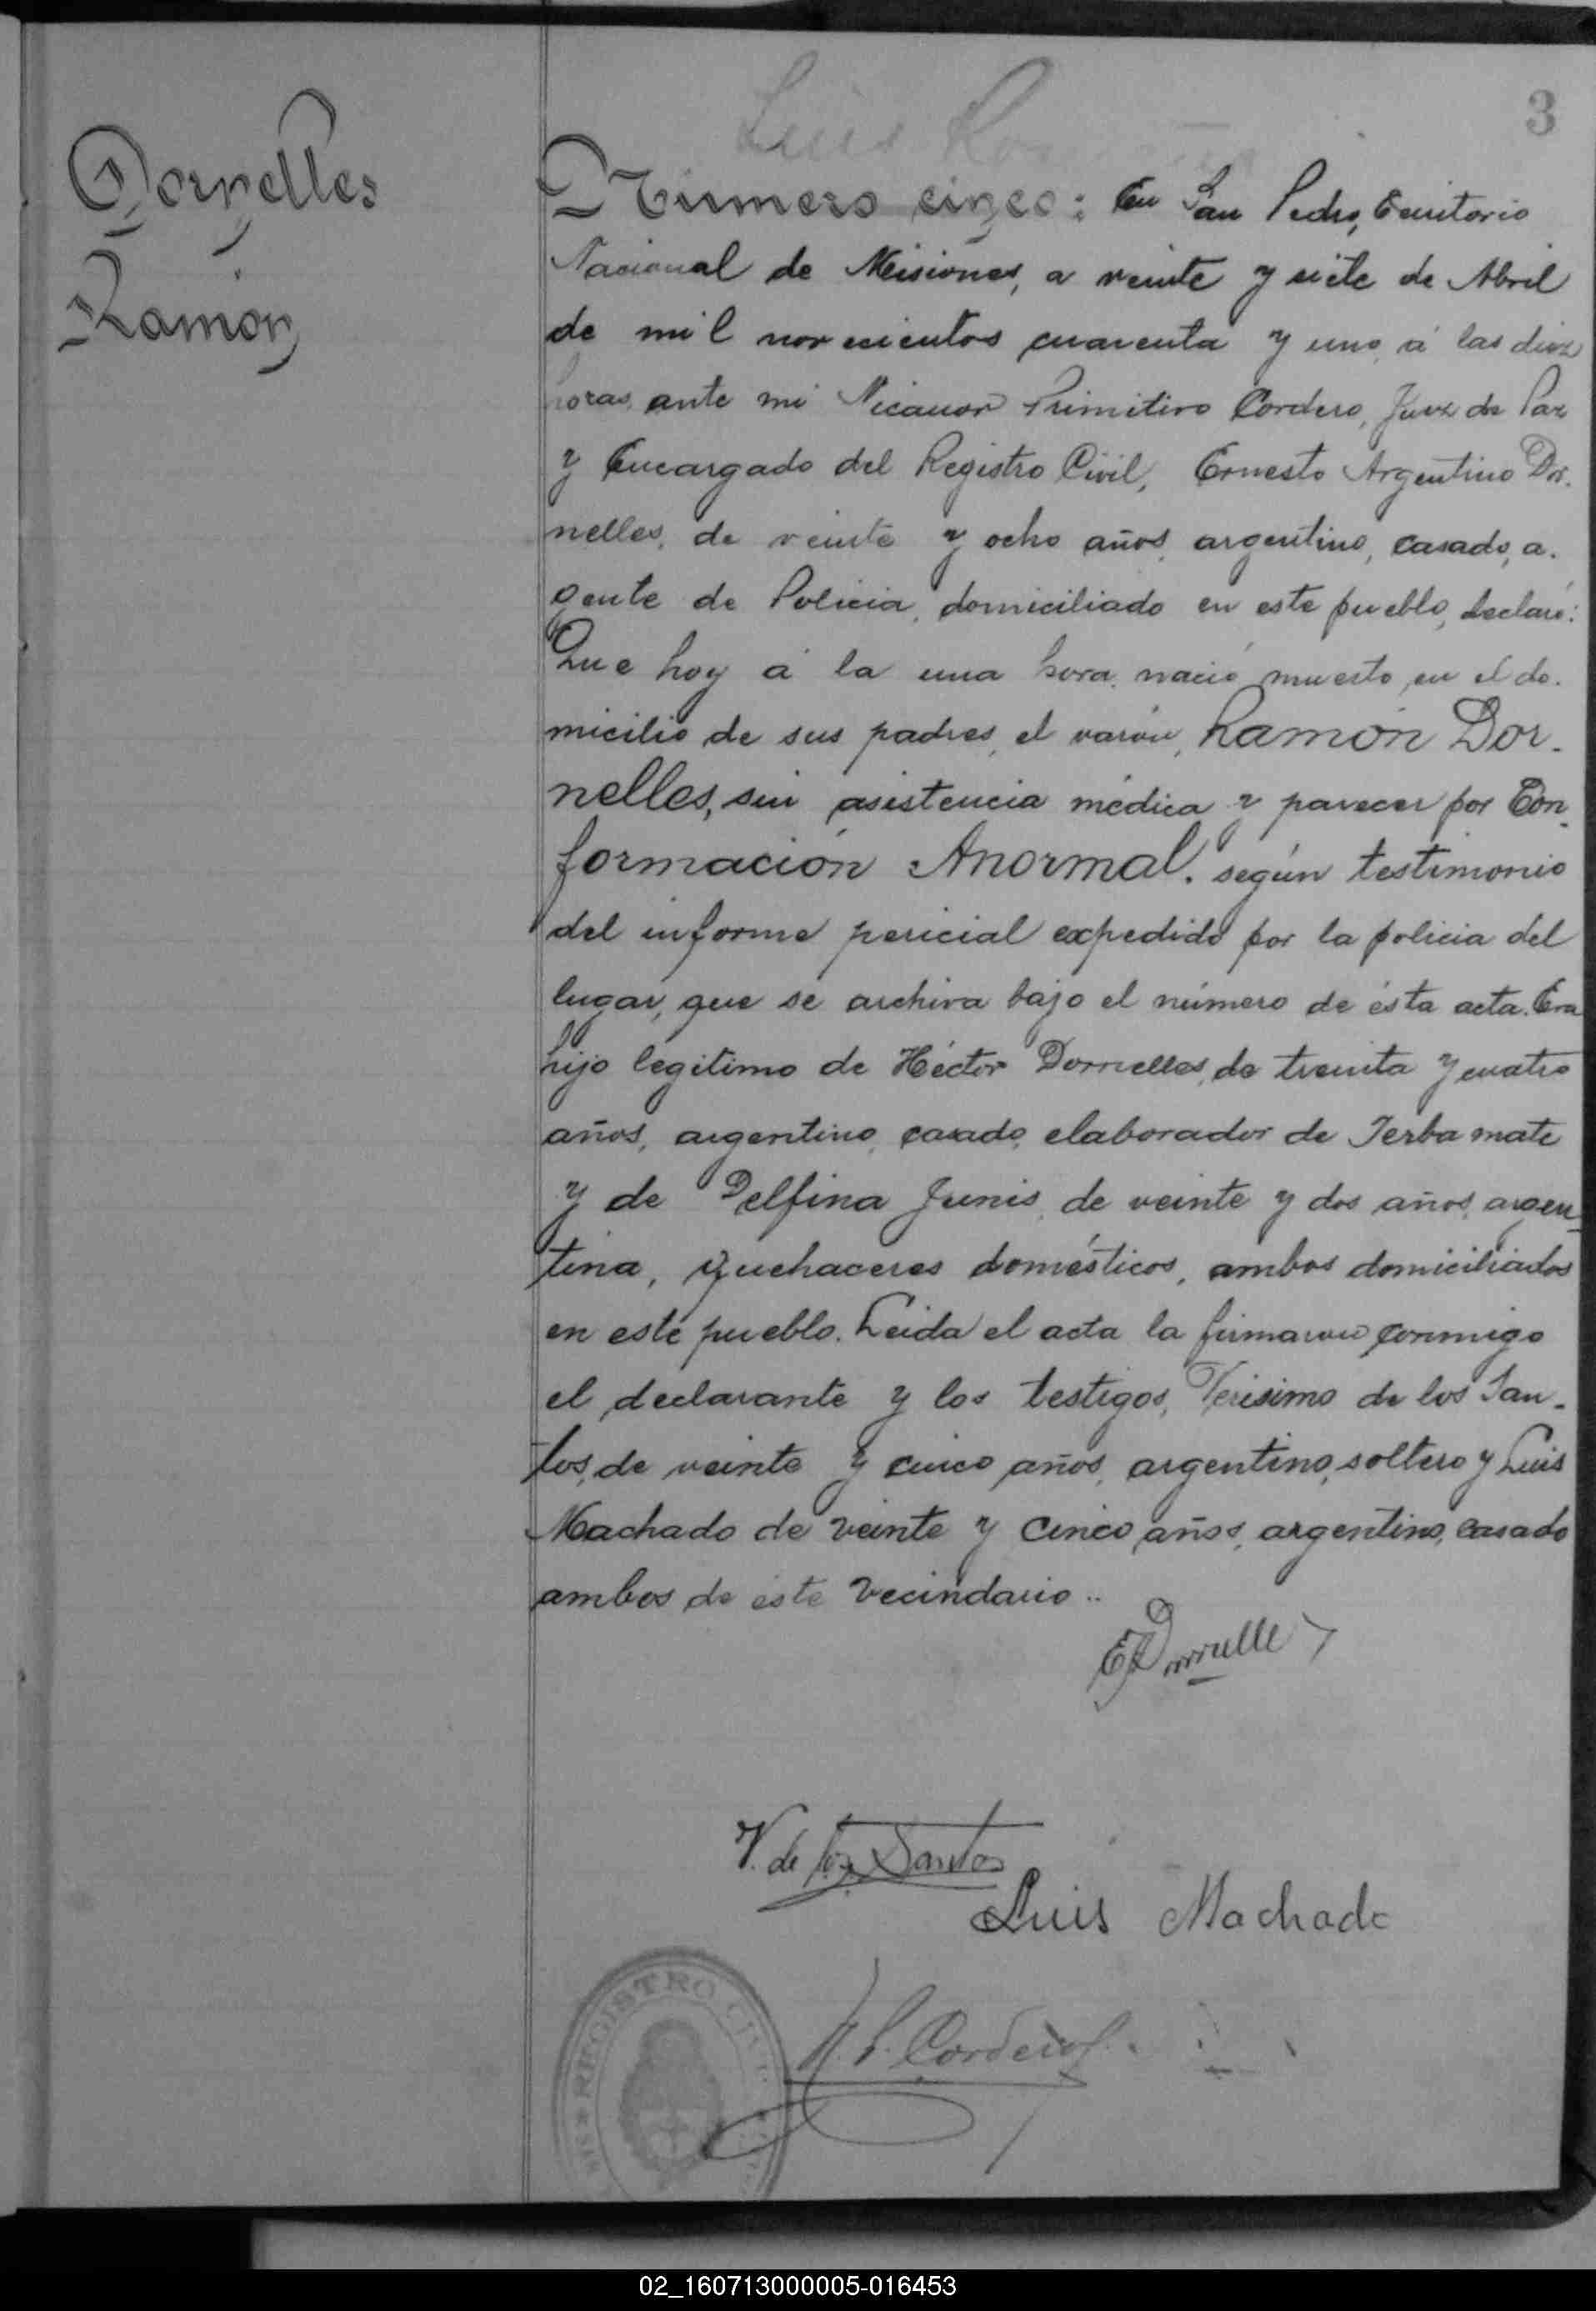 3
Dornelles
Ramón
Número cinco: En San Pedro, Territorio
Nacional de Misiones, a veinte y siete de Abril
de mil novecientos cuarenta y uno, á las diez
horas, ante mi Nicanor Primitivo Cordero, Juez de Paz
y Encargado del Registro Civil, Ernesto Argentino Dor-
nelles, de veinte y ocho años, argentino, casado, a-
gente de Policia, domiciliado en este pueblo, declaró:
Que hoy á la una hora, nació muerto, en el do-
micilio de sus padres, el varón, Ramón Dor-
nelles, sin asistencia médica y parecer por Con-
formación Anormal. según testimonio
del informe pericial expedido por la policia del
lugar, que se archiva bajo el número de ésta acta. Era
hijo legitimo de Héctor Dornelles, de treinta y cuatro
años, argentino, casado, elaborador de Yerba mate
y de Delfina Junis, de veinte y dos años, argen-
tina, quehaceres domésticos, ambos domiciliados
en este pueblo. Leida el acta la firmaron conmigo
el declarante y los testigos, Verisimo de los San-
tos, de veinte y cinco años, argentino, soltero y Luis
Machado de veinte y cinco años, argentino, casado
ambos de este vecindario..
E A Dornelles
V. de los Santos
Luis Machado
N. P. Cordero
REGISTRO CIVIL
02_160713000005-016453